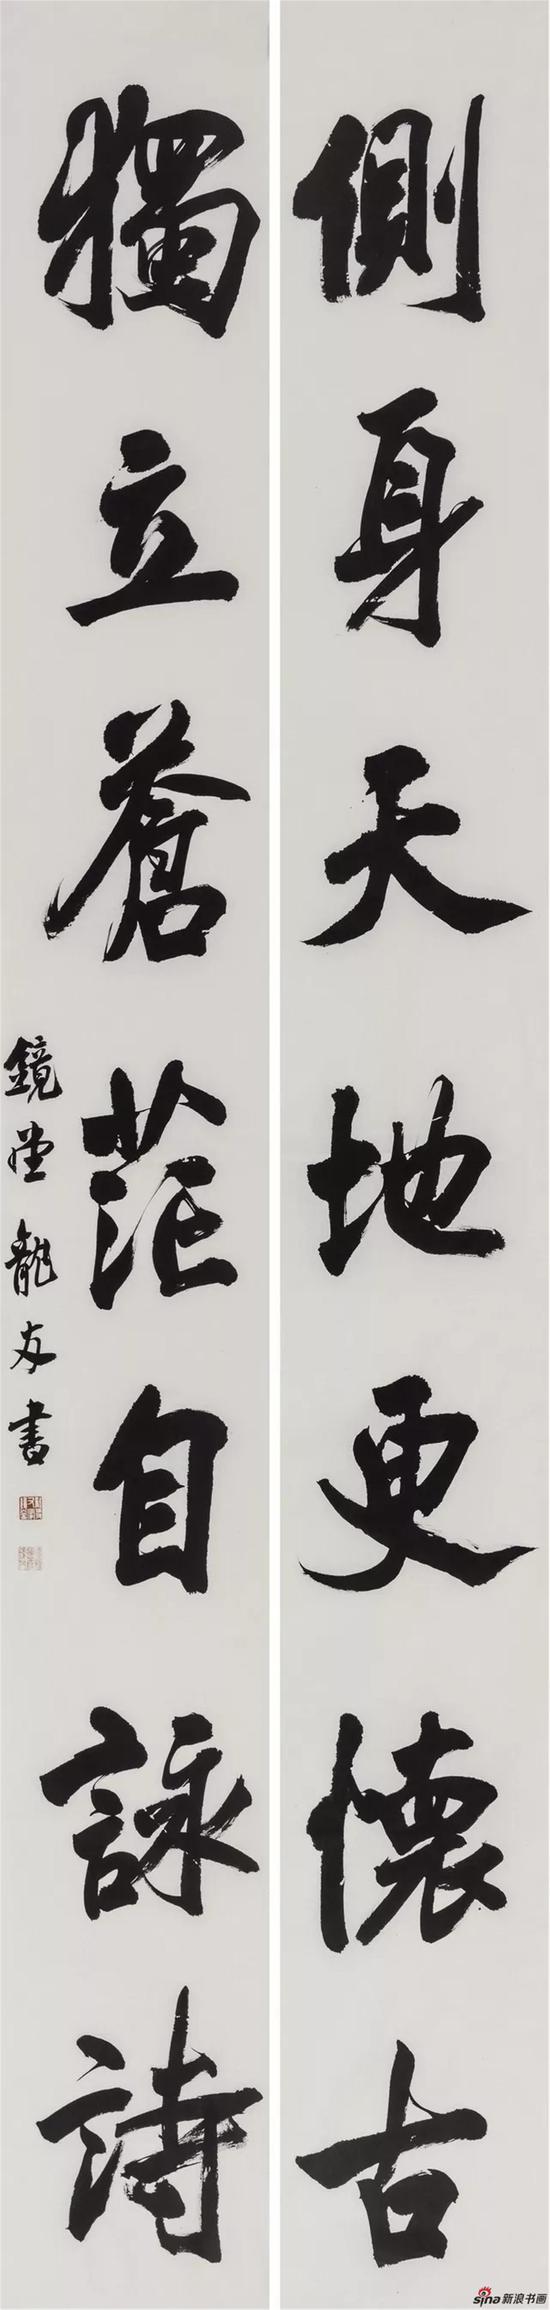 側身天地更懷古
獨立蒼茫自詠詩
鏡堂龍友書
sina新浪书画